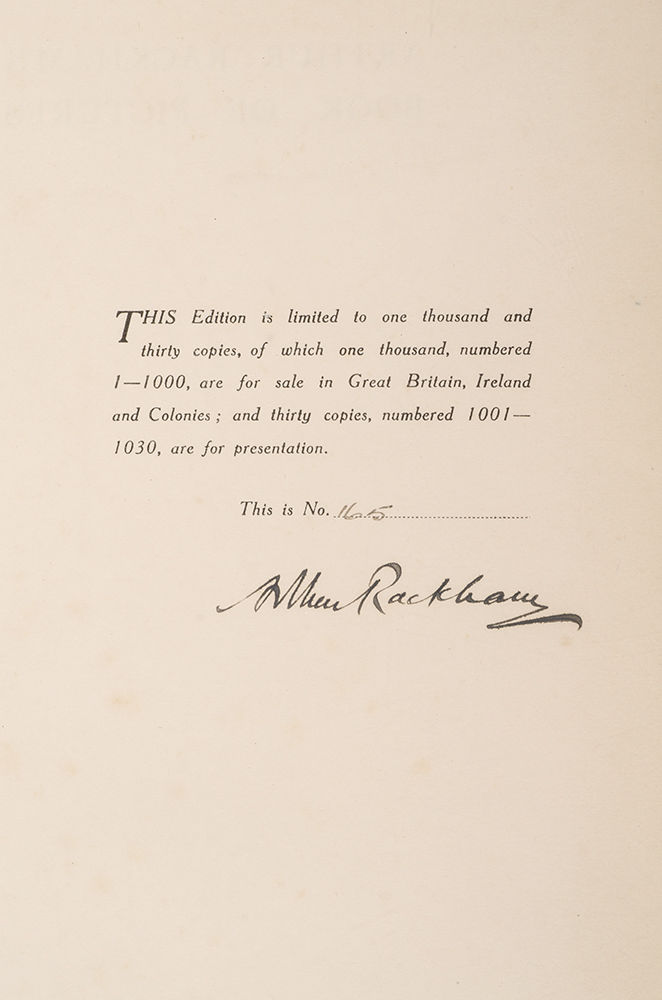 THIS Edition is limited to one thousand and
thirty copies, of which one thousand, numbered
1—1000, are for sale in Great Britain, Ireland
and Colonies ; and thirty copies, numbered 1001—
1030, are for presentation.
This is No. 165
Arthur Rackham